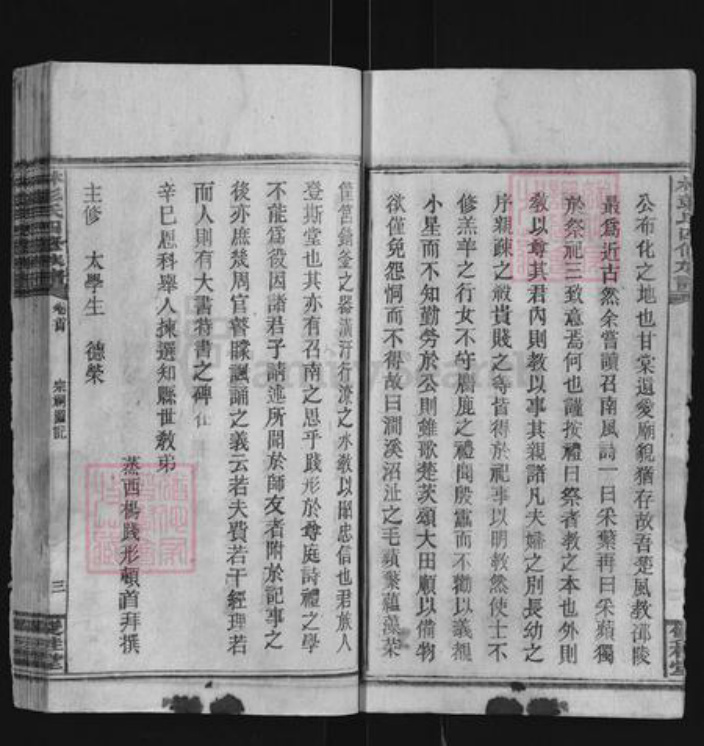 公布化之地也甘棠遺愛廟貌猶存故吾楚風教邵陵
最為近古然余嘗讀召南風詩一曰采蘩再曰采蘋獨
於祭祀三致意焉何也謹按禮曰祭者教之本也外則
教以尊其君內則教以事其親諸凡夫婦之別長幼之
序親疎之殺貴賤之等皆得於祀事以明教然使士不
修羔羊之行女不守麕鹿之禮聞殷靁而不勸以義覩
小星而不知勤勞於公則雖歌楚茨頌大田順以備物
欲僅免怨恫而不得故曰澗溪沼沚之毛蘋蘩薀藻菜
筐筥錡釜之器潢汙行潦之水教以昭忠信也君族人
登斯堂也其亦有召南之思乎踐形於尊庭詩禮之學
不能為役因諸君子請述所聞於師友者附於記事之
後亦庶幾周官瞽矇諷誦之義云若夫費若干經理若
而人則有大書特書之碑在
辛巳恩科舉人揀選知縣世教弟
蒸西楊踐形頓首拜撰
主修 太學生 德榮
彭氏四修族譜
卷首
宗祠圖記
三